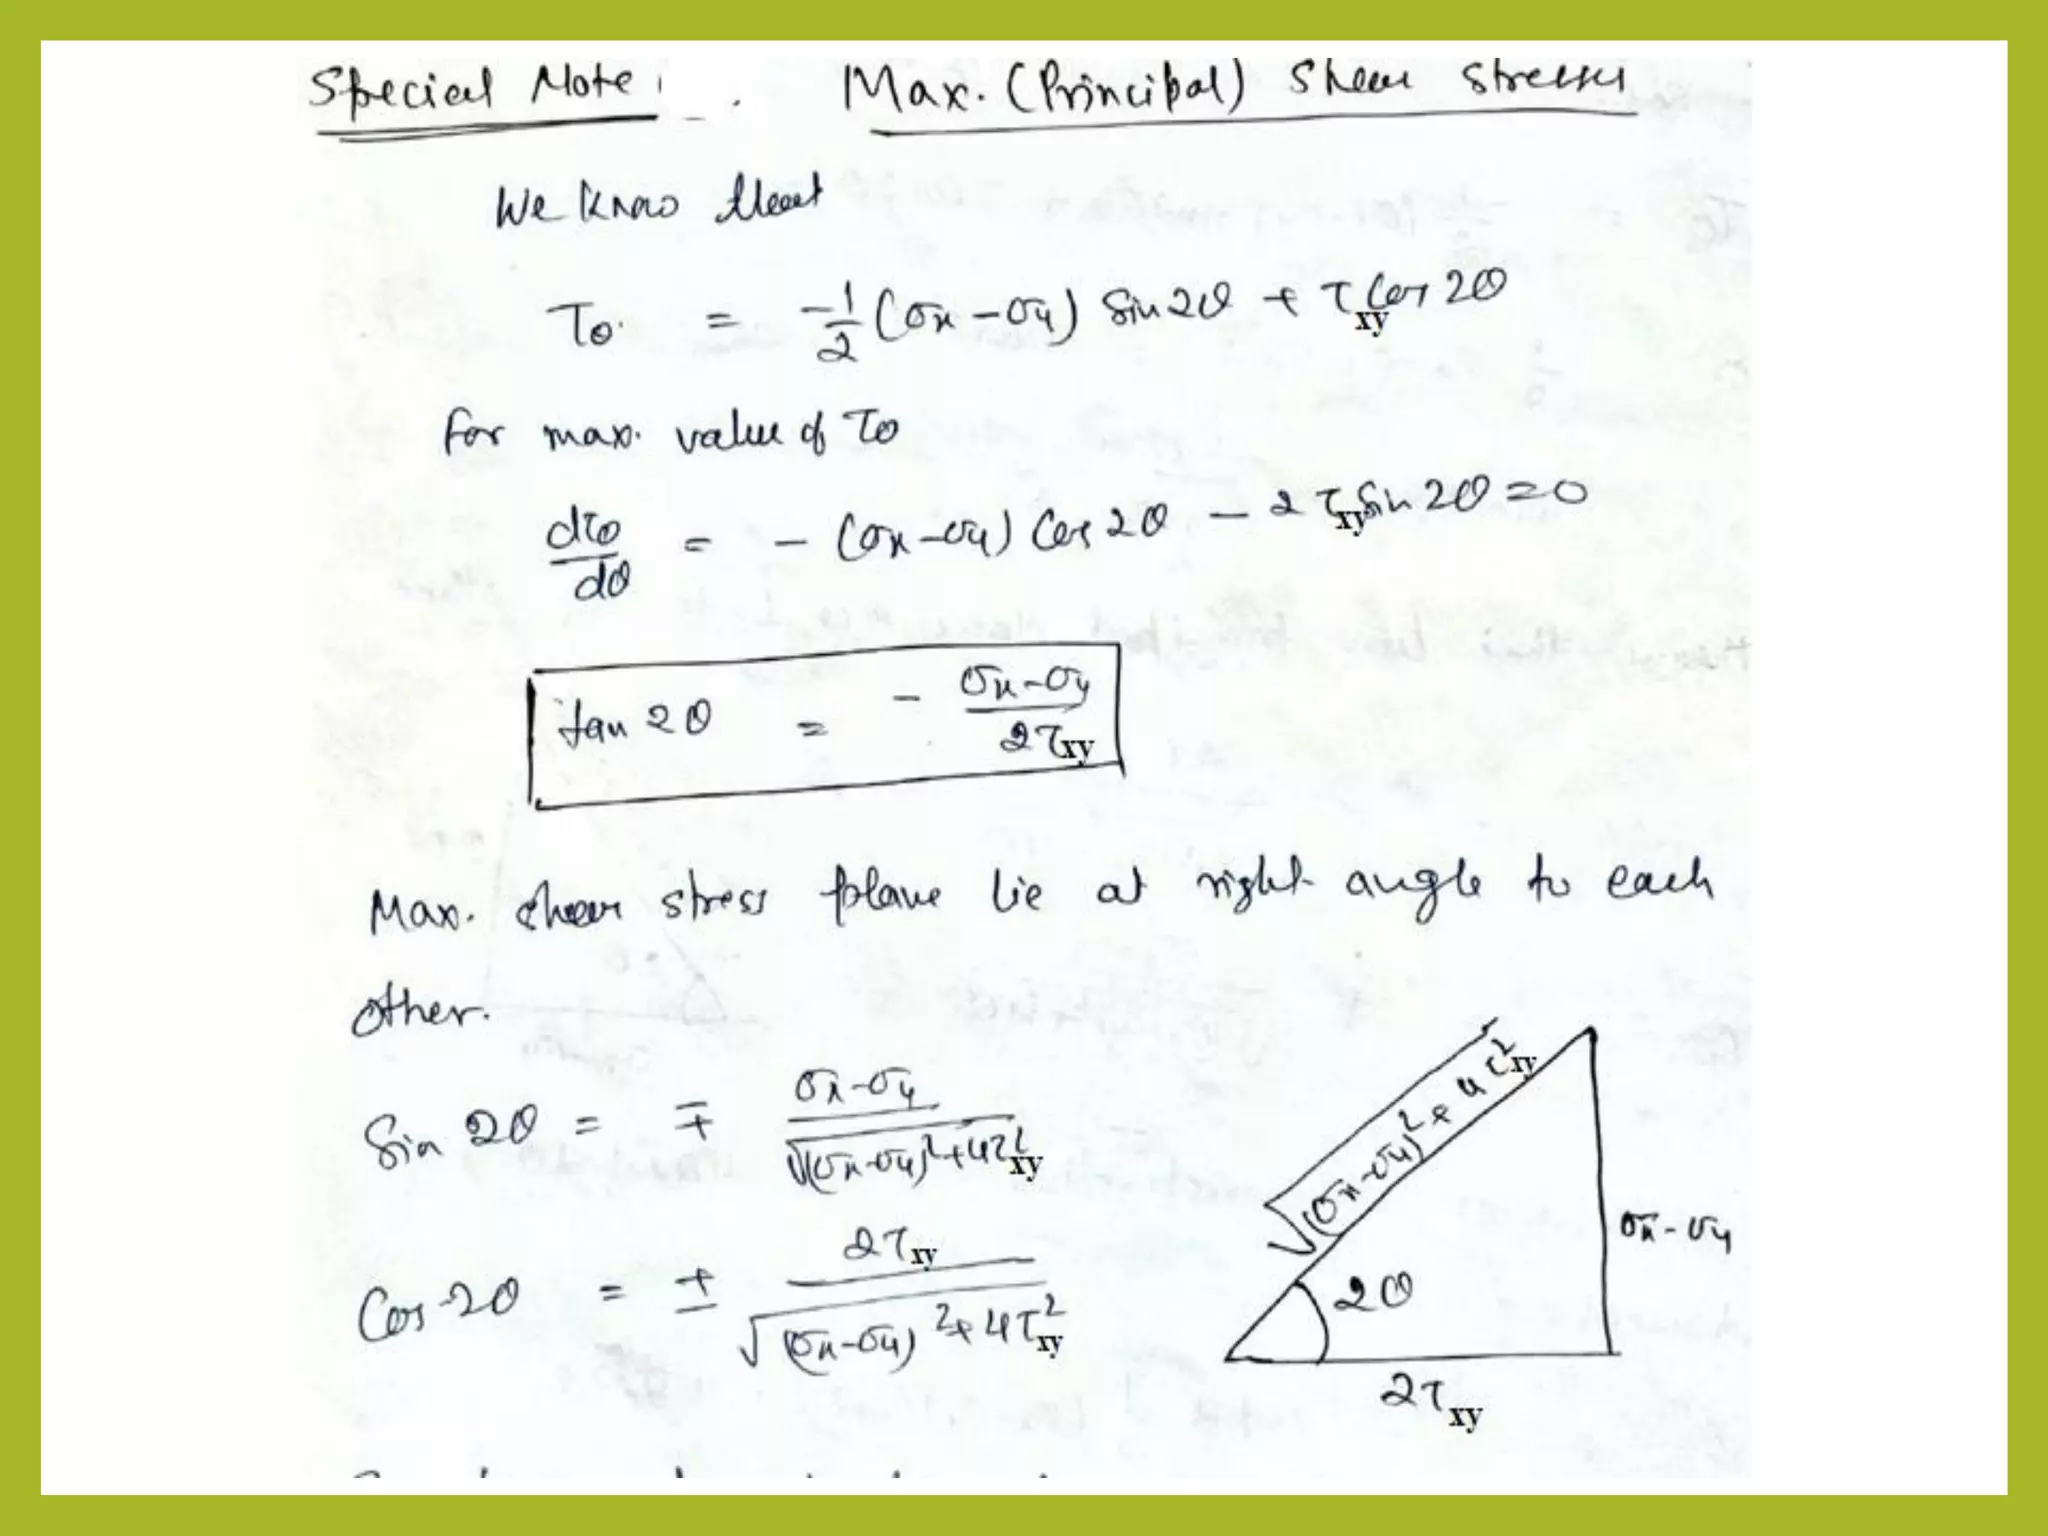 Special Note: Max. (Principal) Shear Stresses
We know that
τθ = -1/2 (σx - σy) Sin 2θ + τxy Cos 2θ
For max. value of τθ
dτθ/dθ = - (σx - σy) Cos 2θ - 2 τxy Sin 2θ = 0
tan 2θ = - (σx - σy)/(2τxy)
Max. shear stress plane lie at right angle to each
other.
Sin 2θ = ∓ (σx - σy)/√((σx - σy)² + 4τ²xy)
Cos 2θ = ± 2τxy/√((σx - σy)² + 4τ²xy)
√((σx - σy)² + 4τ²xy)
σx - σy
2θ
2τxy